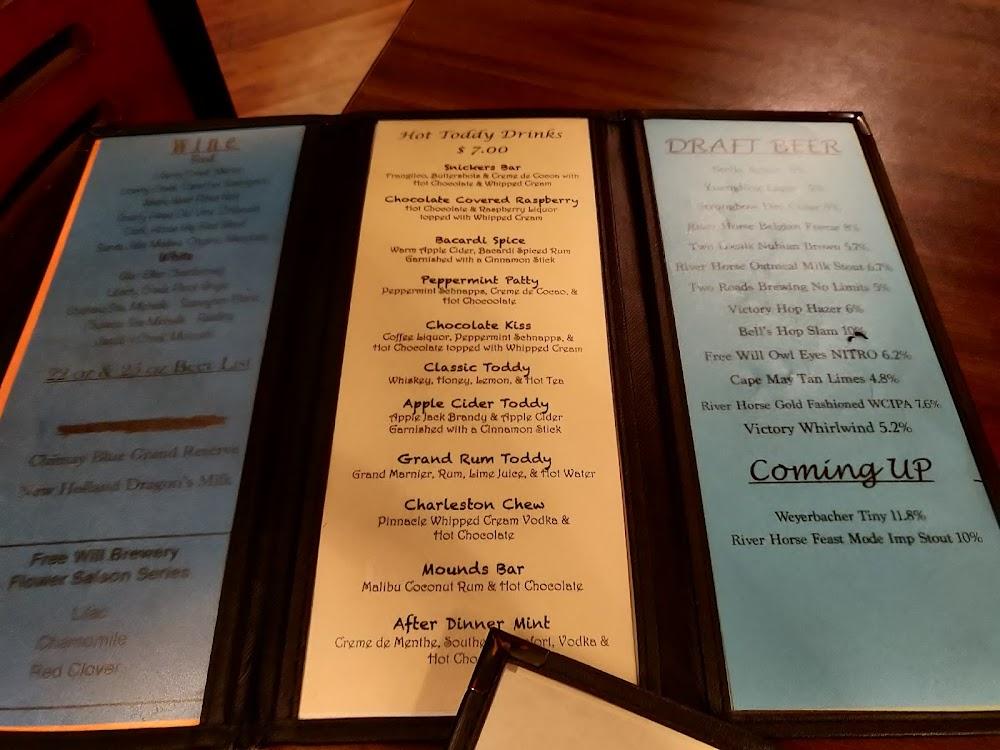 Wine
Red
White
22 oz & 25 oz Beer List
Chimay Blue Grand Reserve
New Holland Dragon's Milk
Free Will Brewery
Flower Saison Series
Lilac
Chamomile
Red Clover
Hot Toddy Drinks
$ 7.00
Snickers Bar
Frangilco, Buttershots & Creme de Cocoa with
Hot Chocolate & Whipped Cream
Chocolate Covered Raspberry
Hot Chocolate & Raspberry Liquor
topped with Whipped Cream
Bacardi Spice
Warm Apple Cider, Bacardi Spiced Rum
Garnished with a Cinnamon Stick
Peppermint Patty
Peppermint Schnapps, Creme de Cocao, &
Hot Chocoolate
Chocolate Kiss
Coffee Liquor, Peppermint Schnapps, &
Hot Chocolate topped with Whipped Cream
Classic Toddy
Whiskey, Honey, Lemon, & Hot Tea
Apple Cider Toddy
Apple Jack Brandy & Apple Cider
Garnished with a Cinnamon Stick
Grand Rum Toddy
Grand Marnier, Rum, Lime Juice, & Hot Water
Charleston Chew
Pinnacle Whipped Cream Vodka &
Hot Chocolate
Mounds Bar
Malibu Coconut Rum & Hot Chocolate
After Dinner Mint
Creme de Menthe, Vodka &
Hot
DRAFT BEER
Yuengling Lager 5%
River Horse Belgian Freeze 8%
Two Locals Nubian Brown 5.7%
River Horse Oatmeal Milk Stout 6.7%
Two Roads Brewing No Limits 5%
Victory Hop Hazer 6%
Bell's Hop Slam 10%
Free Will Owl Eyes NITRO 6.2%
Cape May Tan Limes 4.8%
River Horse Gold Fashioned WCIPA 7.6%
Victory Whirlwind 5.2%
Coming UP
Weyerbacher Tiny 11.8%
River Horse Feast Mode Imp Stout 10%